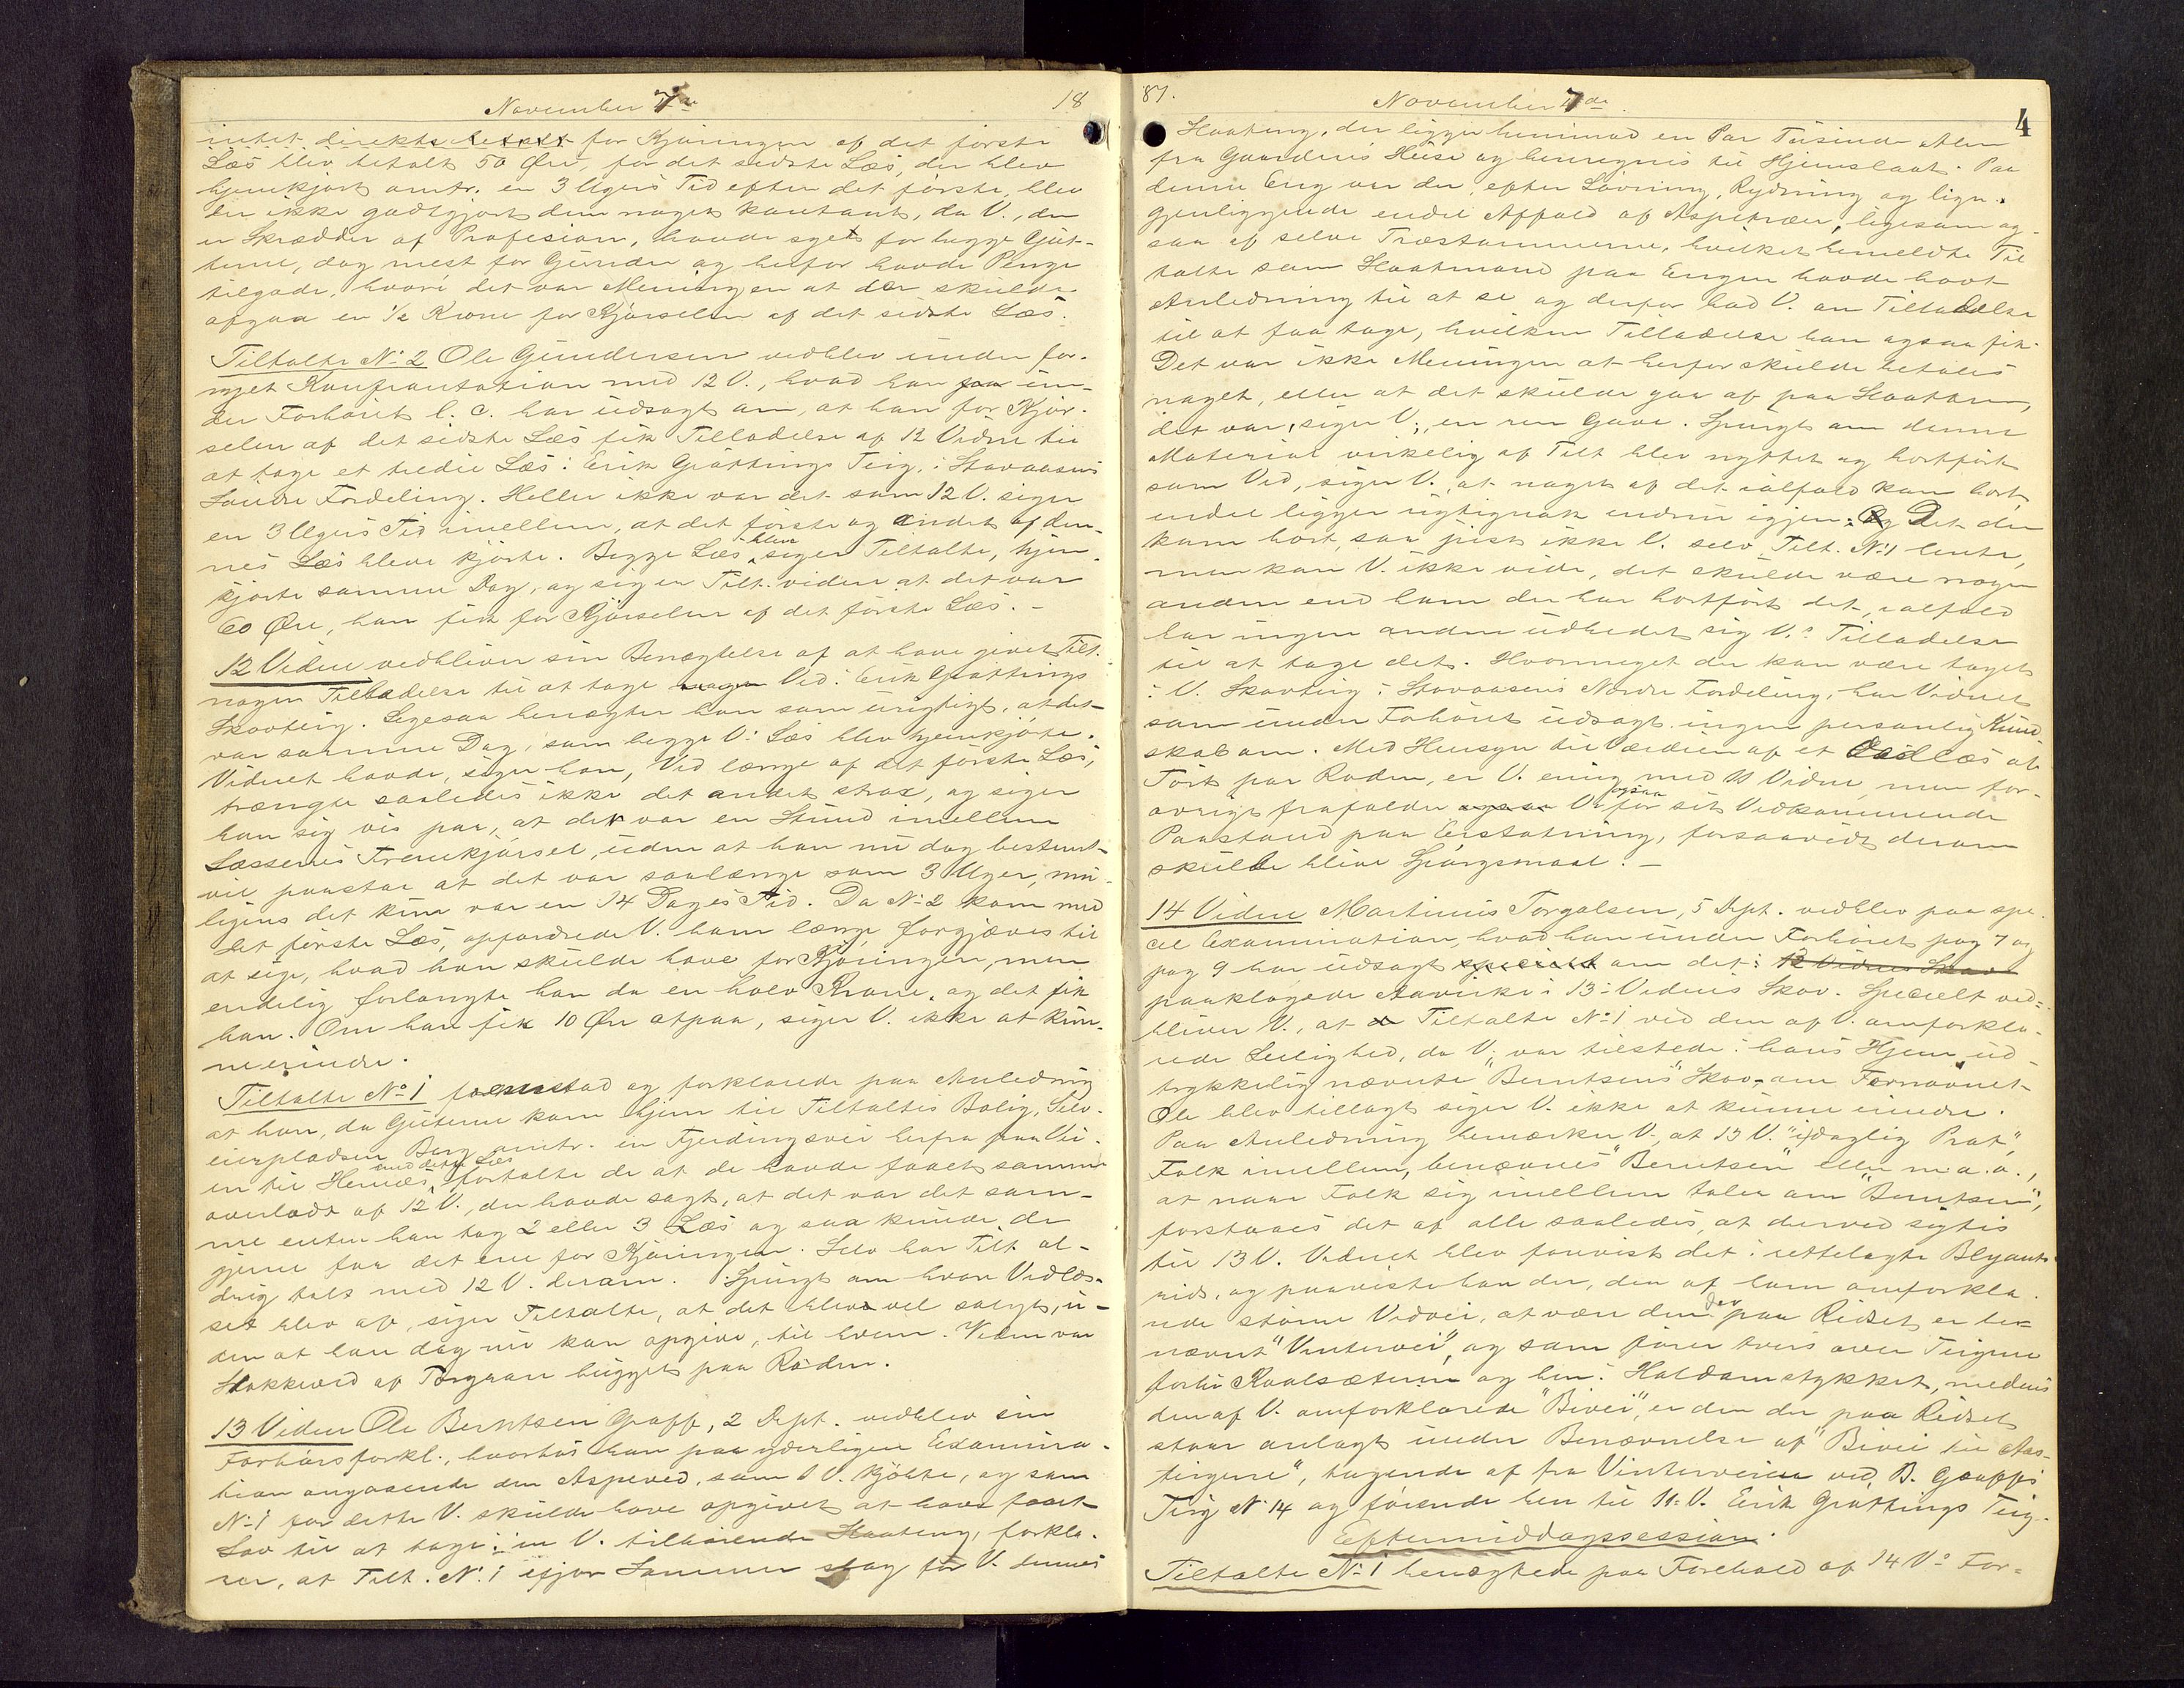 November 7de 18
intet direkte betalt for Kjøringen af det første
Læs blev betalt 50 Øre, for det sidste Læs, der blev
hjemkjørt omtr. en 3 Ugers Tid efter det første, blev
der ikke godtgjort dem noget kontant, da V., der
er Skrædder af Profesion, havde syet for begge Gut-
terne, dog mest for Gunder og herfor havde Penge
tilgode, hvori det var Meningen at der skulde
afgaa en 1/2 Krone for Kjørselen af det sidste Læs.
Tiltalte No 2 Ole Gundersen vedblev under for-
nyet Konfrontation med 12 V., hvad han paa un-
der Forhöret l. c. har udsagt om, at han for Kjør-
selen af det sidste Læs fik Tilladelse af 12 Vidne til
at tage et tredie Læs i Erik Gråttings Teig, i Stavaasens
Søndre Fordeling. Heller ikke var det som 12 V. siger
en 3 Ugers Tid imellem, at det første og andet af den-
nes Læs bleve kjørte. Begge Læs blev, siger Tiltalte, hjem-
kjørte samme Dag, og siger Tilt. videre at det var
60 Øre, han fik for Kjørselen af det første Læs. -
12 Vidne vedbliver sin Benægtelse af at have givet Tilt.
nogen Tilladelse til at tage nogen Ved i Erik Gråttings
Skovteig. Ligesaa benægter han som urigtigt, at det
var samme Dag, som begge V: Læs blev hjemkjørte.
Vidnet havde, siger han, Ved længe af det første Læs,
trængte saaledes ikke det andet strax, og siger
han sig vis paa, at det var en Stund imellem
Læssenes Fremkjørsel, uden at han nu dog bestemt
vil paastaa at det var saalænge som 3 Uger, mu-
ligens det kun var en 14 Dages Tid. Da No 2 kom med
det første Læs, opfordrede V. ham længe forgjæves til
at sige, hvad han skulde have for Kjøringen, men
endelig forlangte han da en halv Krone, og det fik
han. Om han fik 10 Øre atpaa, siger V. ikke at kun-
ne erindre.
Tiltalte No 1 fremstod og forklarede paa Anledning
at han, da Gutterne kom hjem til Tiltaltes Bolig, Selv-
eierpladsen Berg omtr. en Fjerdingsvei herfra paa Vei-
en til Hernæs med dette Læs, fortalte de at de havde faaet samme
overladt af 12 V., der havde sagt, at det var det sam-
me enten han tog 2 eller 3 Læs og saa kunde de
gjerne faa det ene for Kjøringen. Selv har Tilt al-
drig talt med 12 V. derom. Spurgt om hvor Vedlæs-
set blev af, siger Tiltalte, at det blev vel solgt, u-
den at han dog nu kan opgive, til hvem. Veden var
Stokkeved af Tørgran hugget paa Roden.
13 Vidne Ole Berntsen Graff, 2 Dept. vedblev sin
Forhörsforkl., hvorhos han paa yderligere Examina-
tion angaaende den Aspeved, som 1 V. kjöbte, og som
No 1 for dette V. skulde have opgivet at have faaet
Lov til at tage i en V. tilhørende Slaatteng, forkla-
rer, at Tilt. No 1 ifjor Sommer slog for V. dennes
87. November 7de 4
Slaateng, der ligger henimod en Par Tusinde Alen
fra Gaardens Huse og henregnes til Hjemslaat. Paa
denne Eng var der, efter Løvning, Rydning og lign.
gjenliggende endel Affald af Aspetræer, ligesom og-
saa af selve Træstammerne, hvilket bemeldte Til
talte som Slaatmand paa Engen havde havt
Anledning til at se og derfor bad V. om Tilladelse
til at faa tage, hvilken Tilladelse han ogsaa fik.
Det var ikke Meningen at herfor skulde betales
noget, eller at det skulde gaa af paa Slaatten,
det var, siger V., en ren Gave. Spurgt om denne
Material virkelig af Tilt blev nyttet og bortført
som Ved, siger V., at noget af det ialfald kom bort,
endel ligger rigtignok endnu igjen. Og Det der
kom bort, saa just ikke V. selv Tilt. No 1 hente,
men kan V. ikke vide, det skulde være nogen
anden end ham der har bortført det, ialfald
har ingen anden udbedet sig V.s Tilladelse
til at tage det. Hvormeget der kan være taget
i V. Skovteig i Stavaasens Nordre Fordeling, har Vidnet
som under Forhöret udsagt ingen personlig Kund-
skab om. Med Hensyn til Værdien af et Vedlæs af
Tört paa Roden, er V. enig med 11 Vidne, men for-
øvrigt frafalder ogsaa V. ogsaa for sit Vedkommende
Paastand paa Erstatning, forsaavidt derom
skulde blive Spörgsmaal. -
14 Vidne Martinus Torgalsen, 5 Dept. vedblev paa spe-
ciel Examination, hvad han under Forhöret pag 7 og
pag 9 har udsagt specielt om det i 12 Vidnes Skov
paaklagede Aavirke i 13: Vidnes Skov. Specielt ved-
bliver V., at Tiltalte No 1 ved den af V. omforkla-
rede Leilighed, da V. var tilstede i hans Hjem, ud-
trykkelig nævnte "Berntsens" Skov, om Fornavnet
Ole blev tillagt siger V. ikke at kunne erindre.
Paa Anledning bemærker V., at 13 V. "i daglig Prat",
Folk imellem, benævnes "Berntsen" eller m. a. o.,
at naar Folk sig imellem taler om "Berntsen",
forstaaes det af alle saaledes, at derved sigtes
til 13 V. Vidnet blev forevist det i rettelagte Blyants
rids, og paaviste han der, den af ham omforkla-
rede större Vedvei, at være den der paa Ridset er be-
nævnt "Vintervei", og som fører tvers over Teigene
forbi Kvalsæteren og hen i Holdamstykket, medens
den af V. omforklarede "Bivei", er den der paa Ridset
staar anlagt under Benævnelse af "Bivei til Aas-
teigene", tagende af fra Vinterveien ved B. Graffs
Teig No 14 og førende hen til 11: V. Erik Gråttings Teig.
Eftermiddagssession.
Tiltalte No 1 benægtede paa Forehold af 14 V: For-